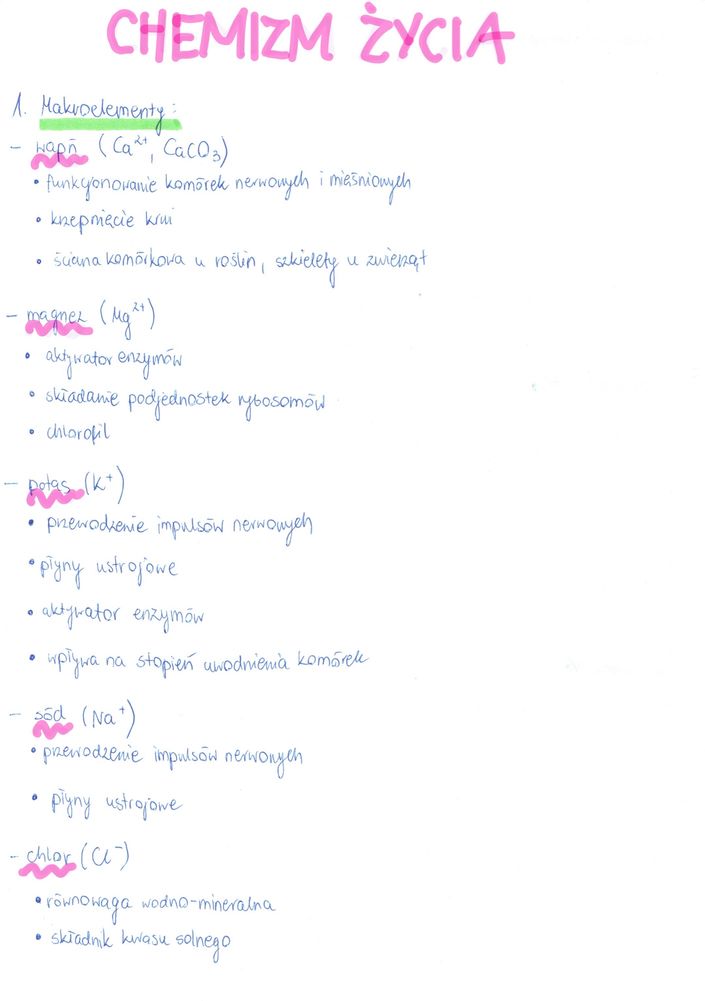 CHEMIZM ŻYCIA
1. Makroelementy:
- wapń (Ca²⁺, CaCO₃)
• funkcjonowanie komórek nerwowych i mięśniowych
• krzepnięcie krwi
• ściana komórkowa u roślin, szkielety u zwierząt
- magnez (Mg²⁺)
• aktywator enzymów
• składanie podjednostek rybosomów
• chlorofil
- potas (K⁺)
• przewodzenie impulsów nerwowych
• płyny ustrojowe
• aktywator enzymów
• wpływa na stopień uwodnienia komórek
- sód (Na⁺)
• przewodzenie impulsów nerwowych
• płyny ustrojowe
- chlor (Cl⁻)
• równowaga wodno-mineralna
• składnik kwasu solnego